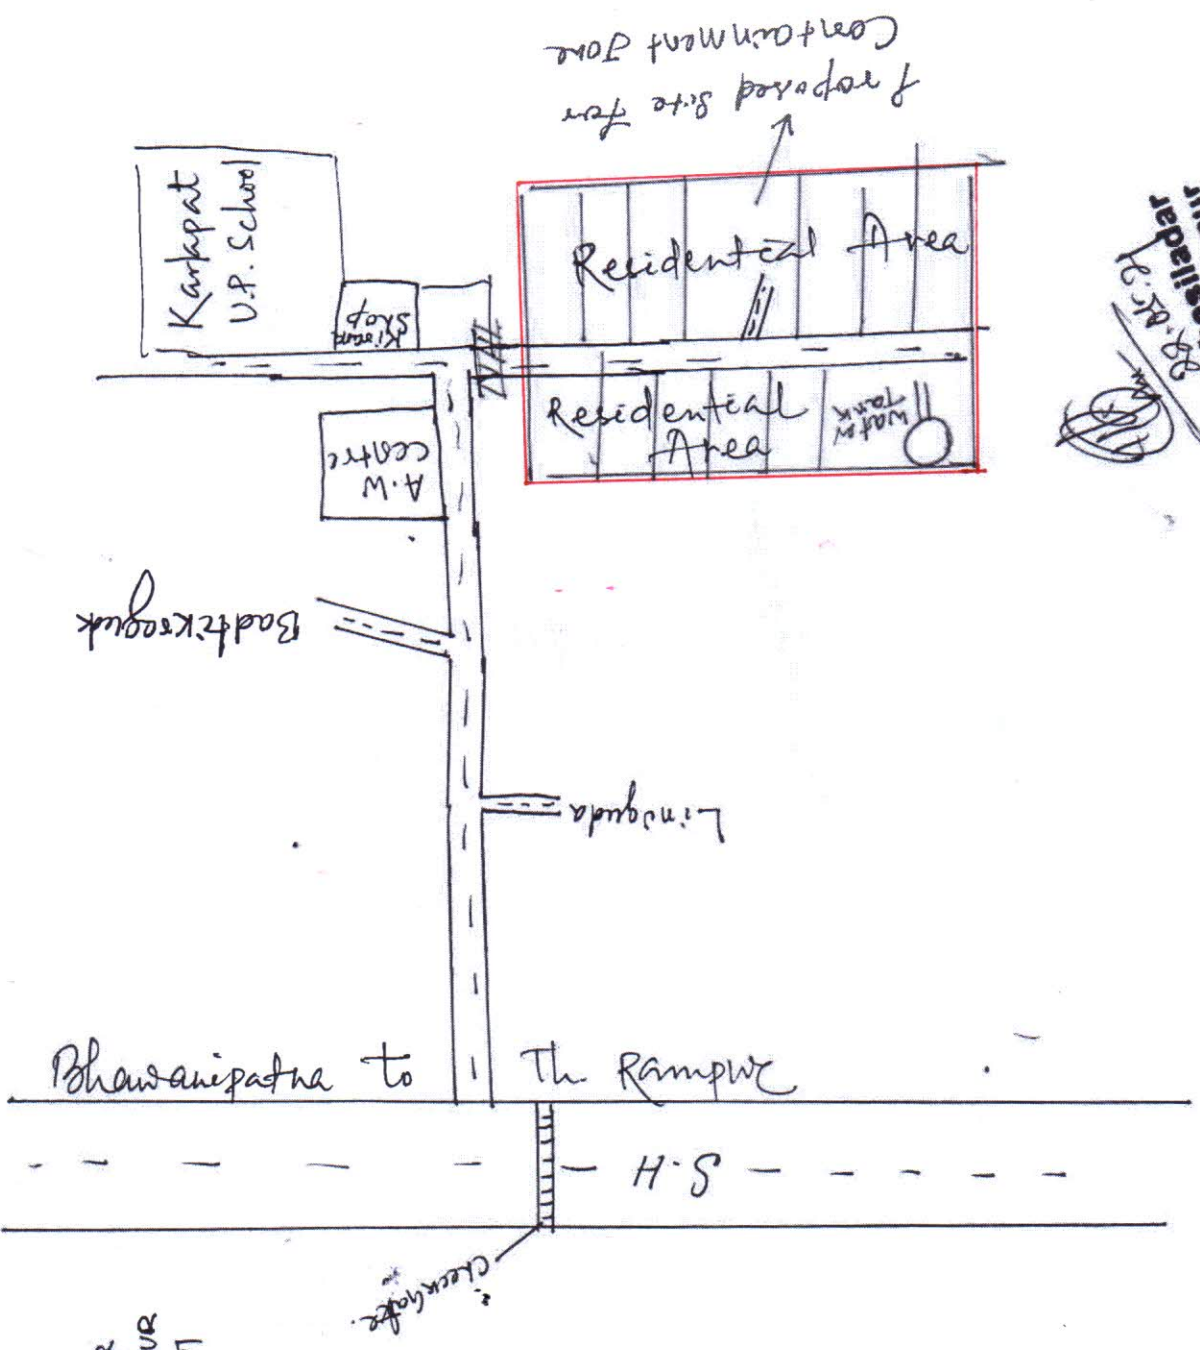 Proposed Site for
Containment Zone
Karlapat
U.P. School
Kirana
Shop
Residential Area
Residential
Area
Water
Tank
A.W
Centre
Badtikraguda
Liniguda
Bhawanipatna to Th. Rampur
S.H
CheckGate.